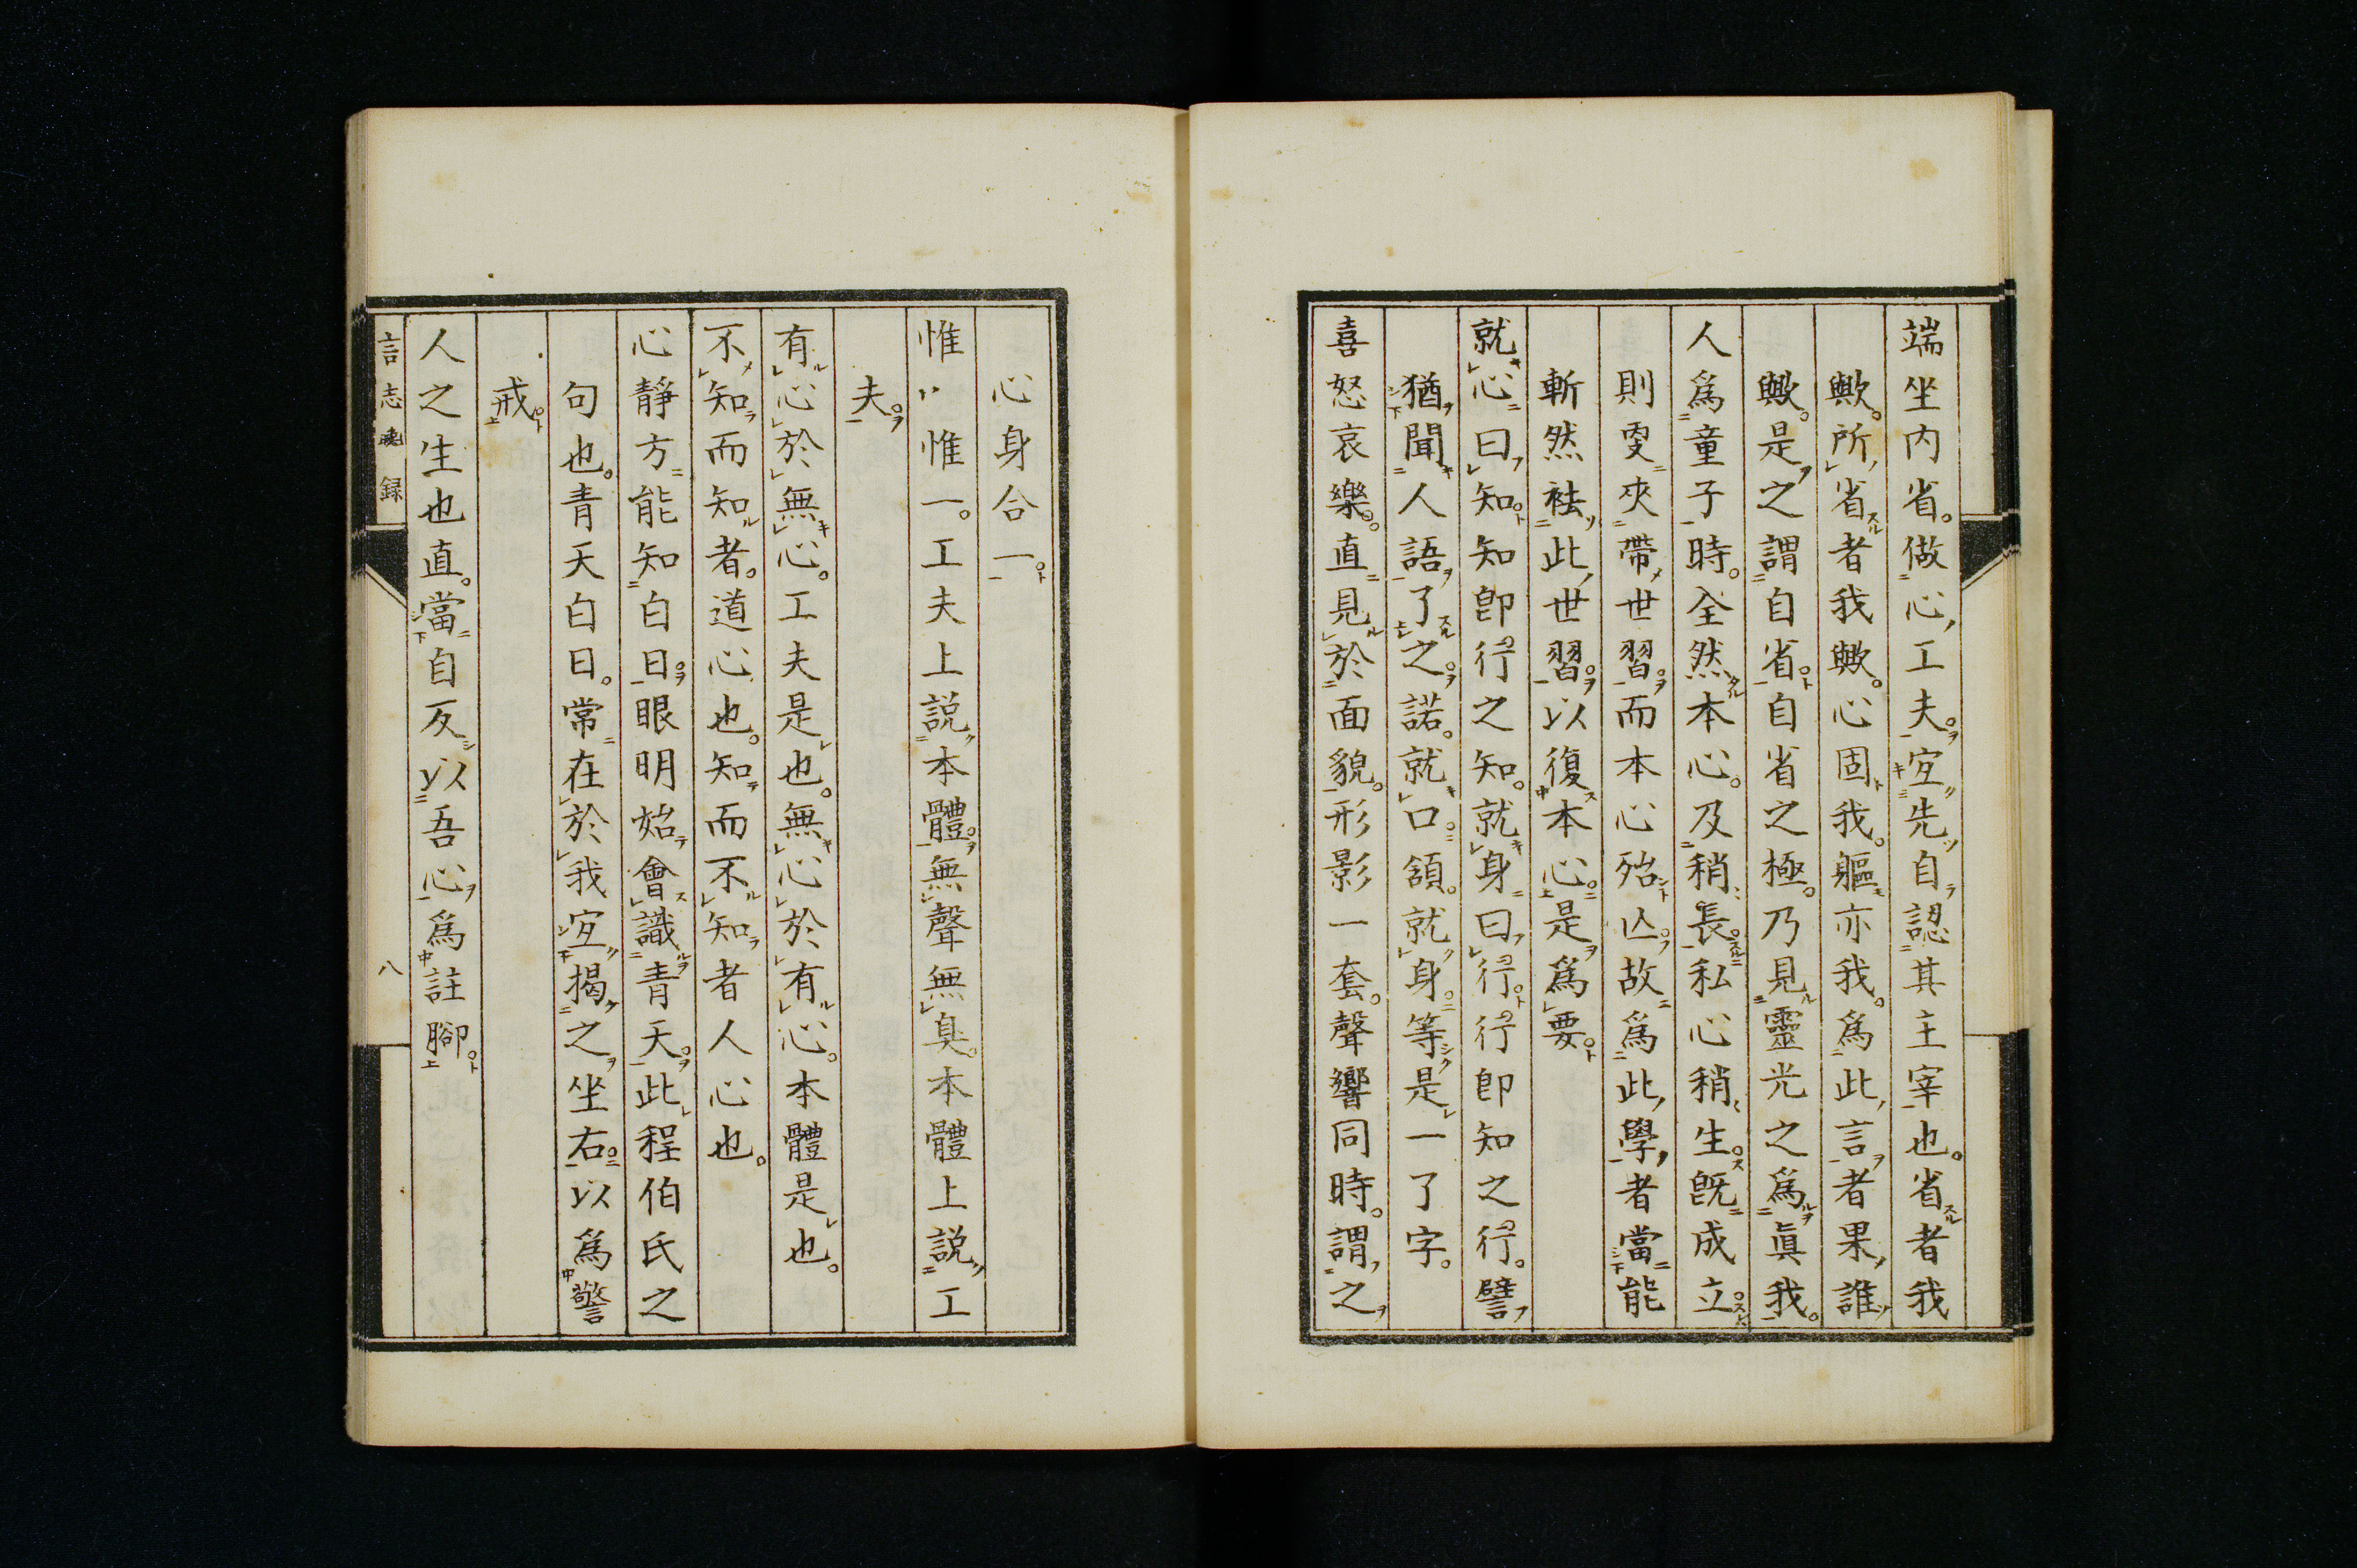 端坐内省。做心工夫。宜先自認其主宰也。省者我
歟。所省者我歟。心固我。軀亦我。爲此言者果誰
歟。是之謂自省。自省之極。乃見靈光之爲眞我。
人爲童子時。全然本心。及稍長。私心稍生。既成立。
則更夾帶世習。而本心殆亾。故爲此學者當能
斬然袪此世習。以復本心。是爲要。
就心曰知。知卽行之知。就身曰行。行卽知之行。譬
猶聞人語了之。諾。就口。頷。就身。等是一了字。
喜怒哀樂。直見於面貌。形影一套。聲響同時。謂之
心身合一。
惟〻惟一。工夫上説本體。無聲無臭。本體上説工
夫。
有心於無心。工夫是也。無心於有心。本體是也。
不知而知者。道心也。知而不知者人心也。
心靜方能知白日。眼明始會識青天。此程伯氏之
句也。青天白日。常在於我。宜揭之坐右。以爲警
戒。
人之生也直。當自反以吾心爲註腳。
言志晩録
八